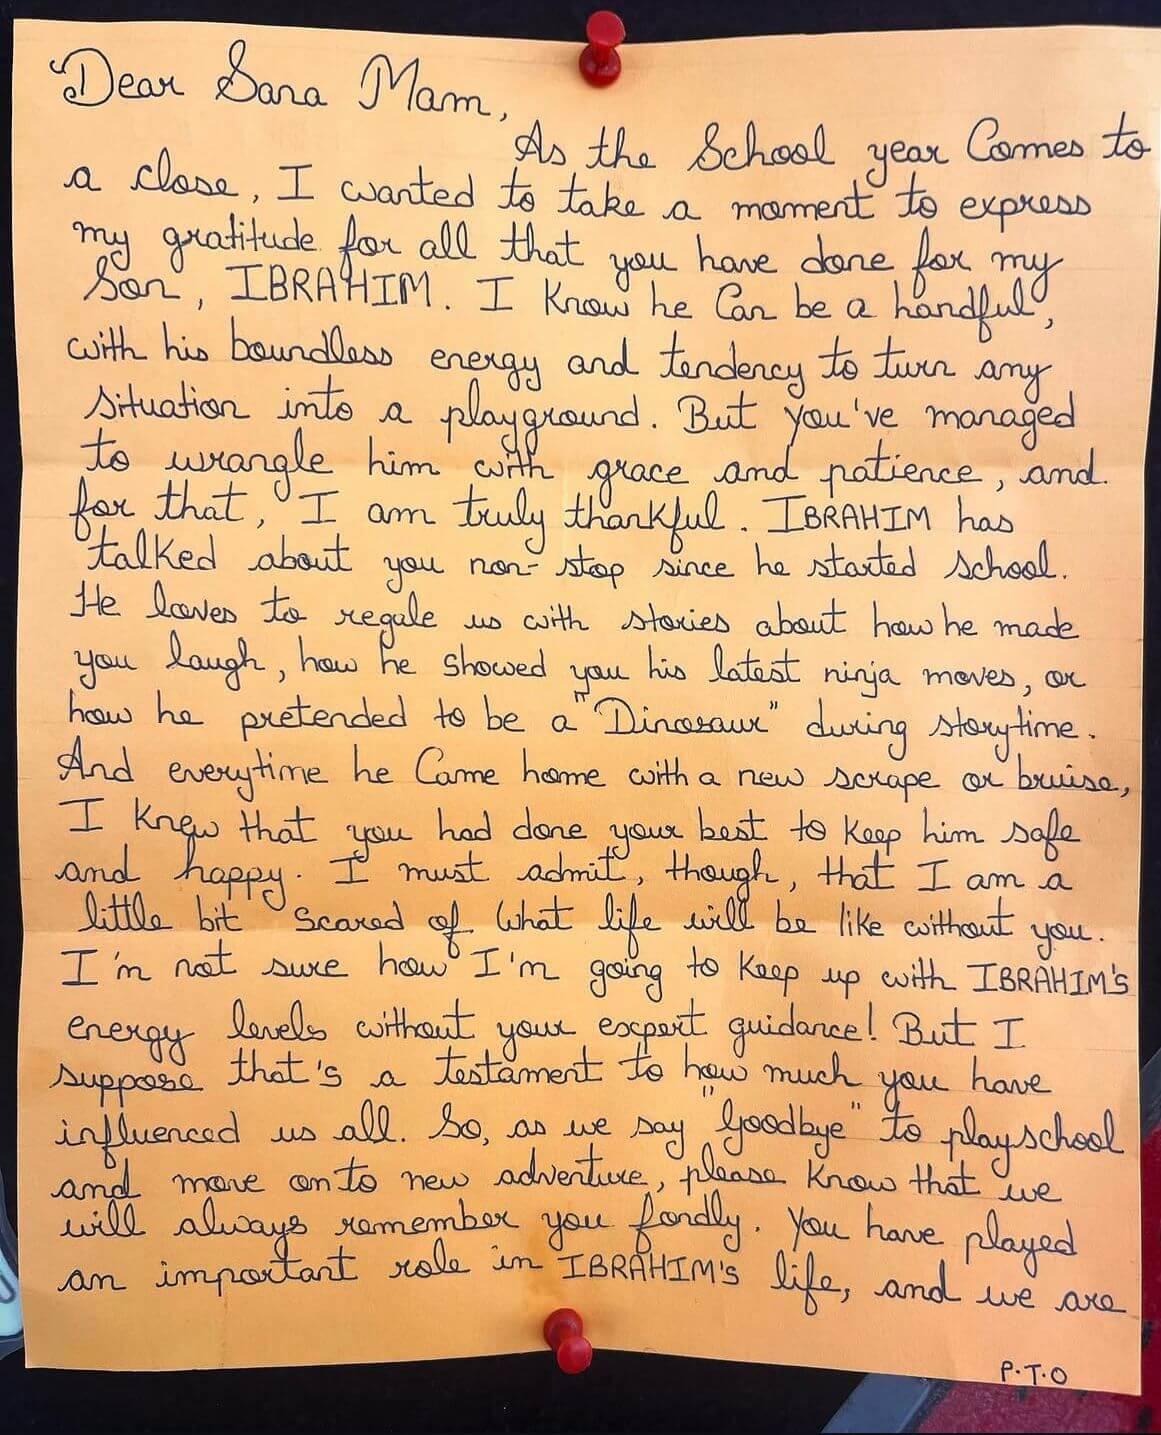 Dear Sara Mam,
As the School year Comes to
a close, I wanted to take a moment to express
my gratitude for all that you have done for my
Son, IBRAHIM. I Know he Can be a handful,
with his boundless energy and tendency to turn any
situation into a playground. But you've managed
to wrangle him with grace and patience, and.
for that, I am truly thankful. IBRAHIM has
talked about you non-stop since he started school.
He loves to regale us with stories about how he made
you laugh, how he showed you his latest ninja moves, or
how he pretended to be a "Dinosaur" during storytime.
And everytime he Came home with a new scrape or bruise,
I Knew that you had done your best to Keep him safe
and happy. I must admit, though, that I am a
little bit scared of What life will be like without you.
I'm not sure how I'm going to Keep up with IBRAHIM's
energy levels without your expert guidance! But I
suppose that's a testament to how much you have
influenced us all. So, as we say "Goodbye" to playschool
and move onto new adventure, please Know that we
will always remember you fondly. You have played
an important role in IBRAHIM's life, and we are
P.T.O